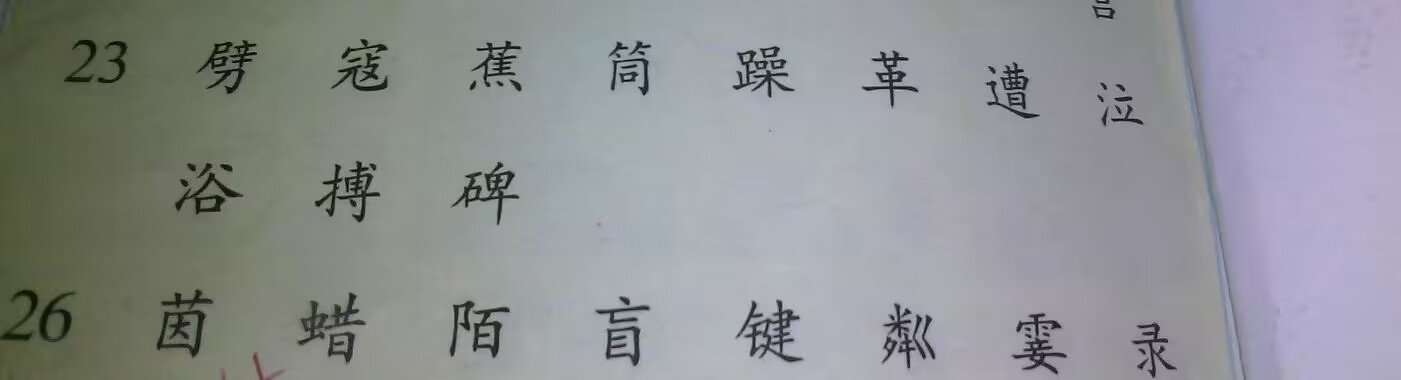 23 劈 寇 蕉 筒 躁 革 遭 泣
浴 搏 碑
26 茵 蜡 陌 盲 键 粼 霎 录